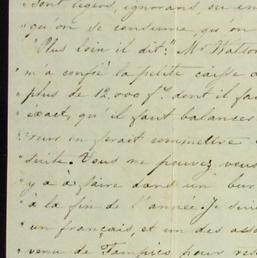 sont légers, ignorans, ou en
qu'on se consume, qu'on
"Plus loin il dit: "Mr Watson
m'a confié la petite caisse d
plus de 12,000 f. dont il fau
exact, qu'il faut balancer
reur on ferait commettre
suite. Vous ne pouvez vous
y a à faire dans un bur
à la fin de l'année. Je suis
un français, et un des asso
venu de Tampico pour res